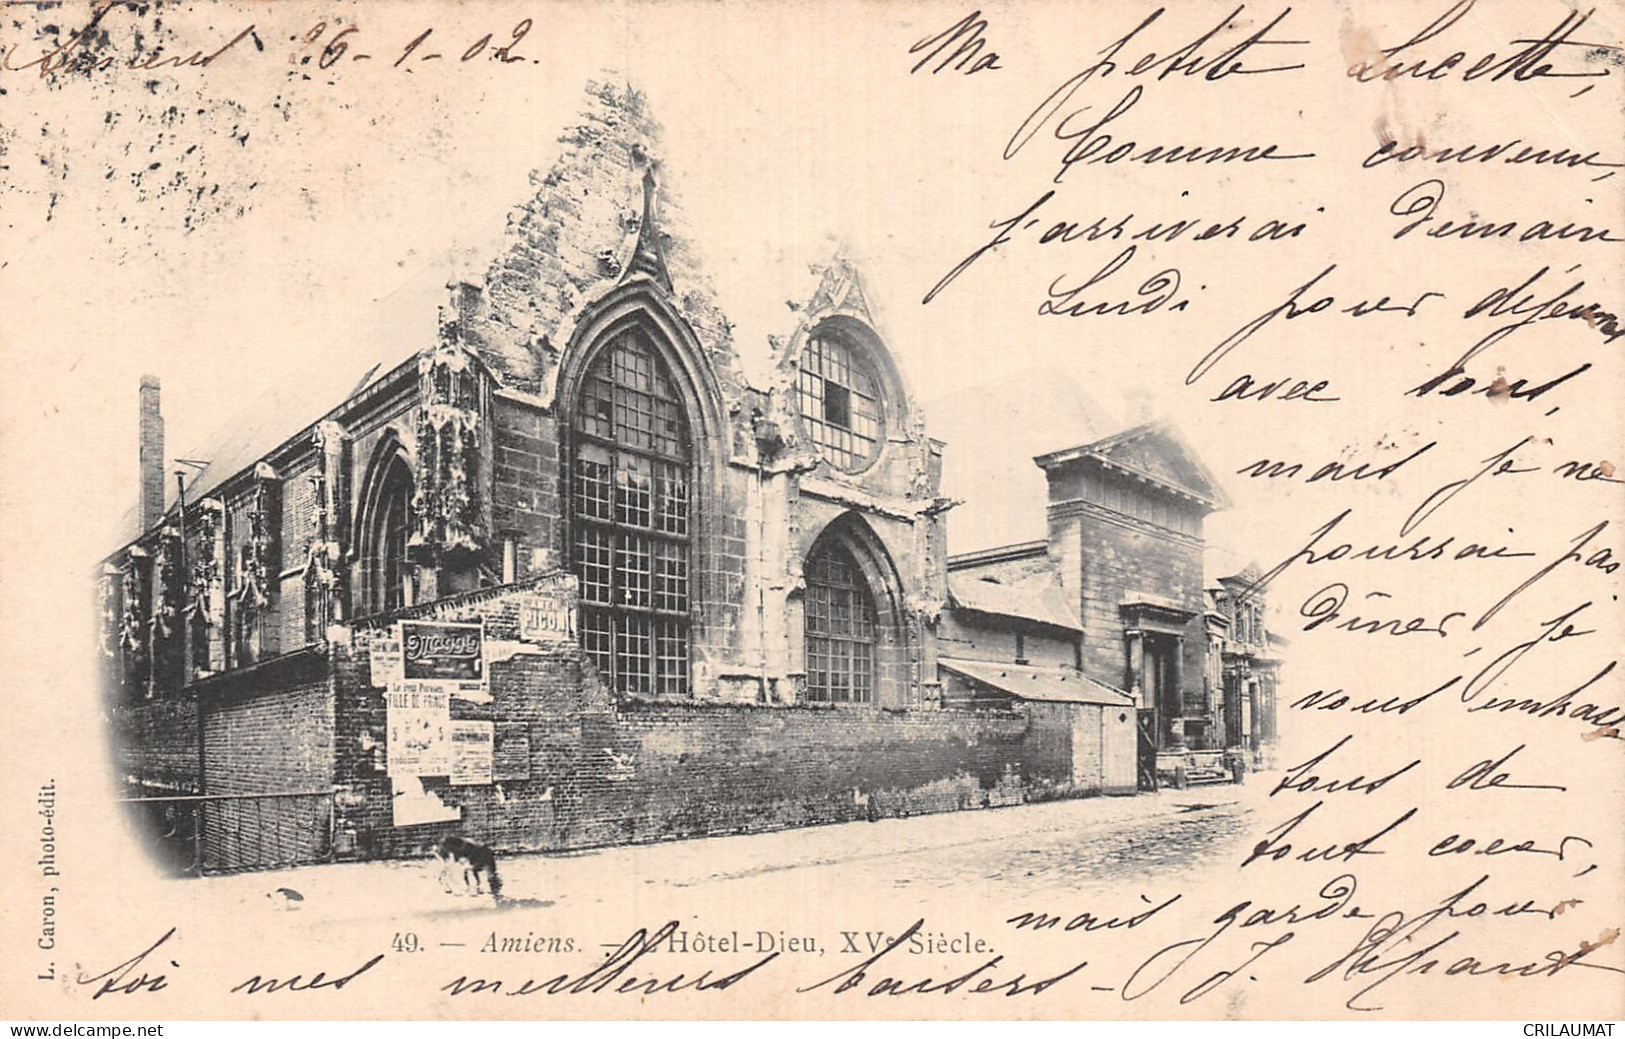 Amiens 26-1-02.
Ma petite Lucette,
Comme convenu,
j'arriverai Demain
Lundi pour déjeuner
avec vous,
mais je ne
pourrai pas
Dîner, je
vous embrasse
tous de
tout coeur,
mais garde pour
toi mes meilleurs baisers - J.
Maggy
PICON
Le Petit Parisien
FILLE DE PRINCE
49. — Amiens. — L'Hôtel-Dieu, XVe Siècle.
L. Caron, photo-édit.
CRILAUMAT